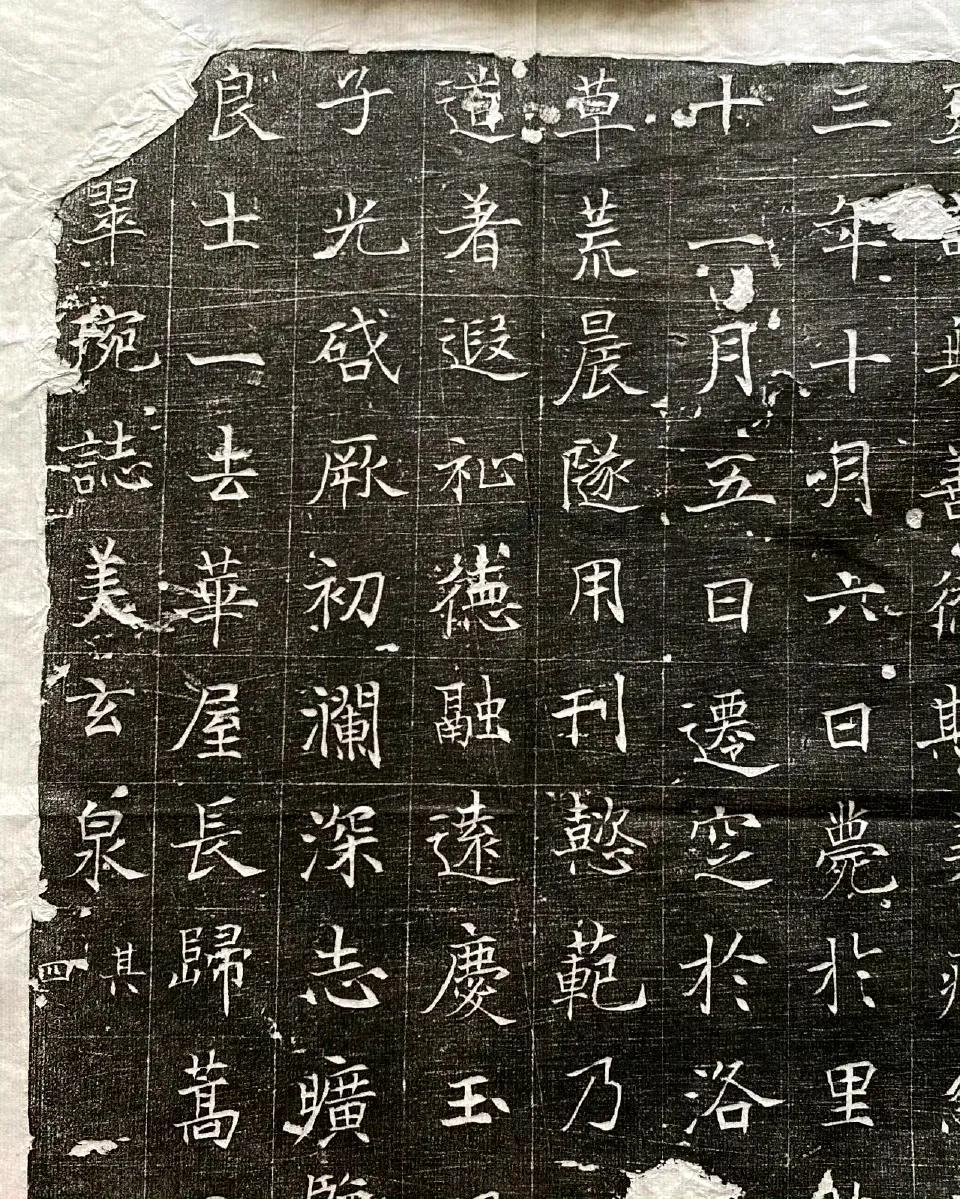 三年十月六日薨於里
十一月五日遷窆於洛
草荒晨隧用刊懿範乃
道著遐祉德融遠慶玉
子光啟厥初瀾深志曠
良士一去華屋長歸蒿
翠琬誌美玄泉其四